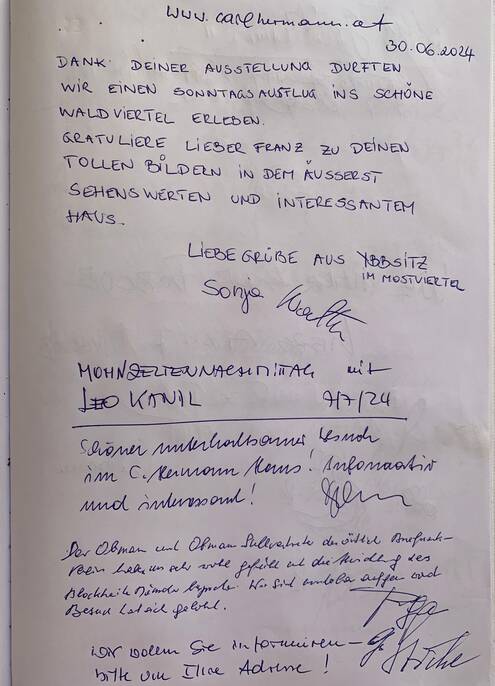 www.carlhermann.at
30.06.2024
DANK DEINER AUSSTELLUNG DURFTEN
WIR EINEN SONNTAGSAUSFLUG INS SCHÖNE
WALDVIERTEL ERLEBEN.
GRATULIERE LIEBER FRANZ ZU DEINEN
TOLLEN BILDERN IN DEM ÄUSSERST
SEHENSWERTEN UND INTERESSANTEM
HAUS.
LIEBE GRÜßE AUS YBBSITZ
IM MOSTVIERTEL
Sonja
MOHNZELTENNACHMITTAG mit
LEO KANIL 7/7/24
Schöner unterhaltsamer Besuch
im C. Hermann Haus! Informativ
und interessant!
Der Obmann und Obmann Stellvertreter des
haben sehr wohl gefühlt und die des
Blockheide
Besuch hat sich gelohnt.
Wir wollen Sie informieren –
bitte um Ihre Adresse!